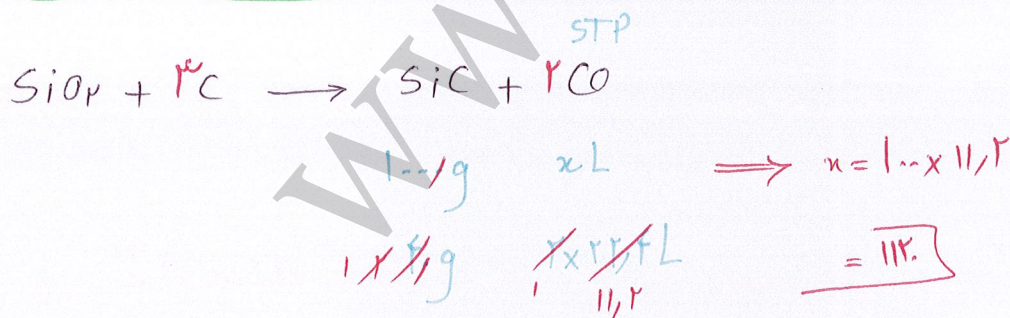 STP
SiO۲ + ۳C ⟶ SiC + ۲CO
۱۰۰۰g xL ⟹ x = ۱۰۰ × ۱۱,۲
۱ ۴۰g ۲×۲۲,۴L = ۱۱۲۰
۱ ۱۱,۲
WW